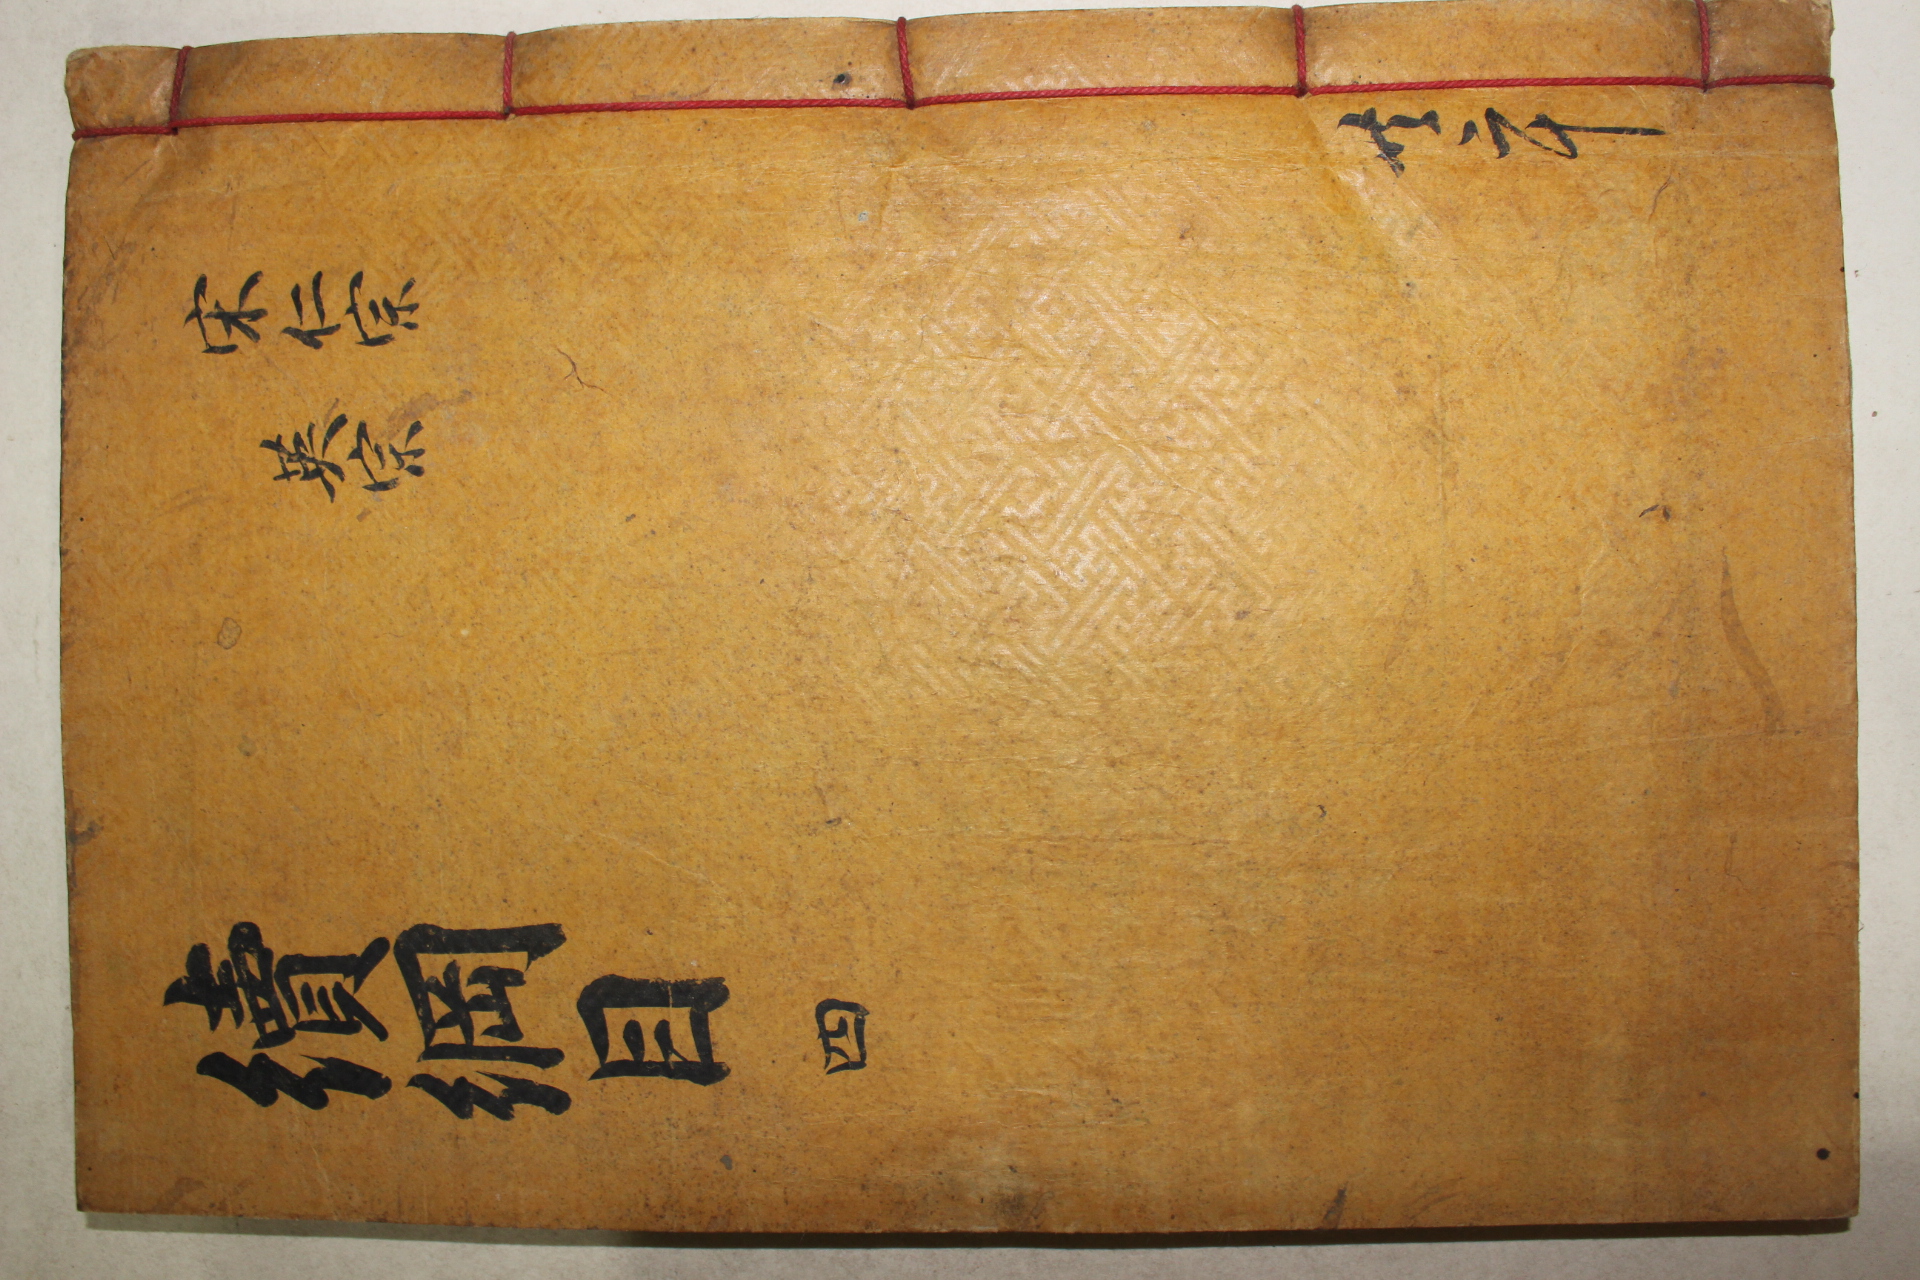 宋仁宗
英宗
續綱目 四
共二十